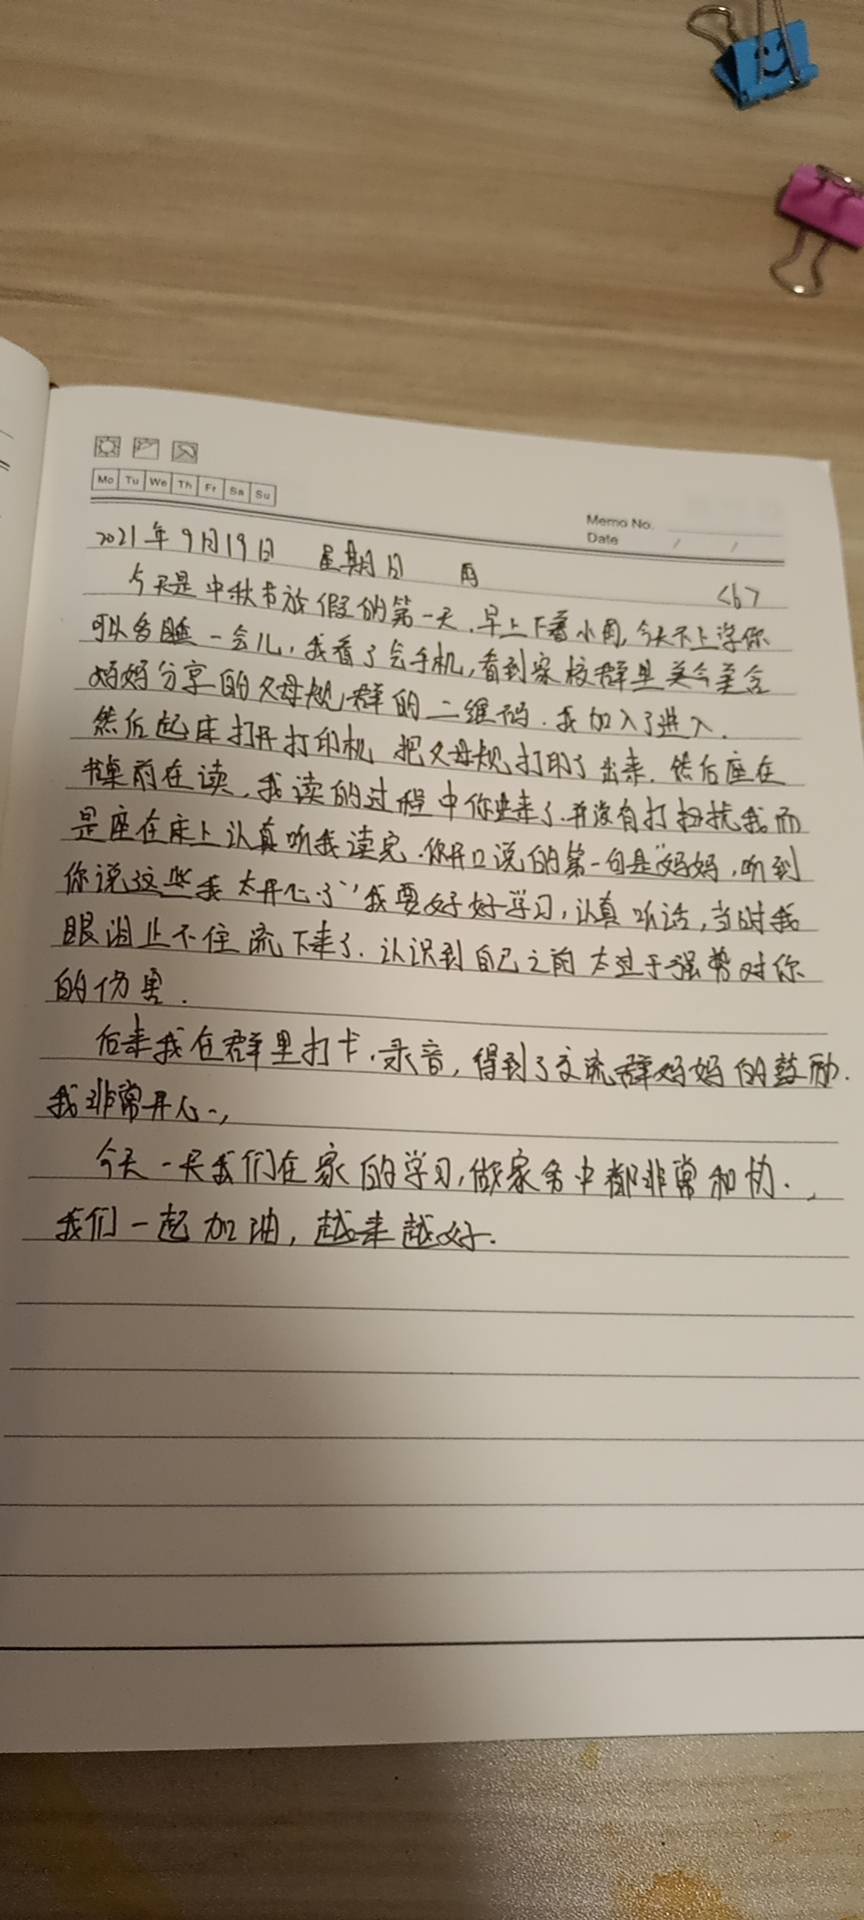 Mo Tu We Th Fr Sa Su
Memo No.
Date / /
2021年9月19日 星期日 雨 <6>
今天是中秋节放假的第一天.早上下着小雨,今天不上学你
可以多睡一会儿,我看了会手机,看到家校群里美含
妈妈分享的父母规群的二维码.我加入了进入.
然后起床打开打印机 把父母规打印了出来.然后座在
书桌前在读.我读的过程中你出来了.并没有打扫扰我而
是座在床上认真听我读完.你开口说的第一句是"妈妈,听到
你说这些我太开心了",我要好好学习,认真听话,当时我
眼泪止不住流下来了.认识到自己之前太过于强势对你
的伤害.
后来我在群里打卡.录音,得到了交流群妈妈的鼓励.
我非常开心,
今天一天我们在家的学习,做家务中都非常和协.,
我们一起加油,越来越好.